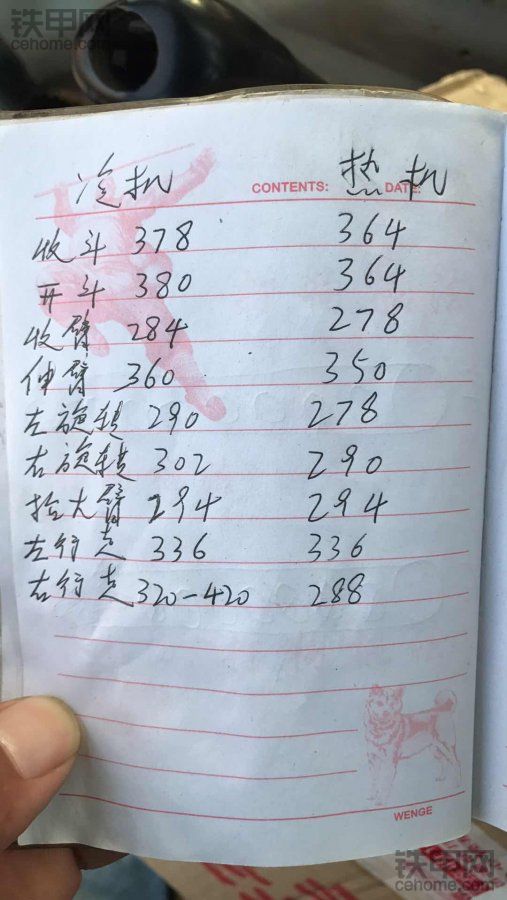 铁甲网
cehome.com
冷机 CONTENTS: 热机 DATE:
收斗 378 364
开斗 380 364
收臂 284 278
伸臂 360 350
左旋转 290 278
右旋转 302 290
抬大臂 294 294
左行走 336 336
右行走 320-420 288
WENGE
铁甲网
cehome.com